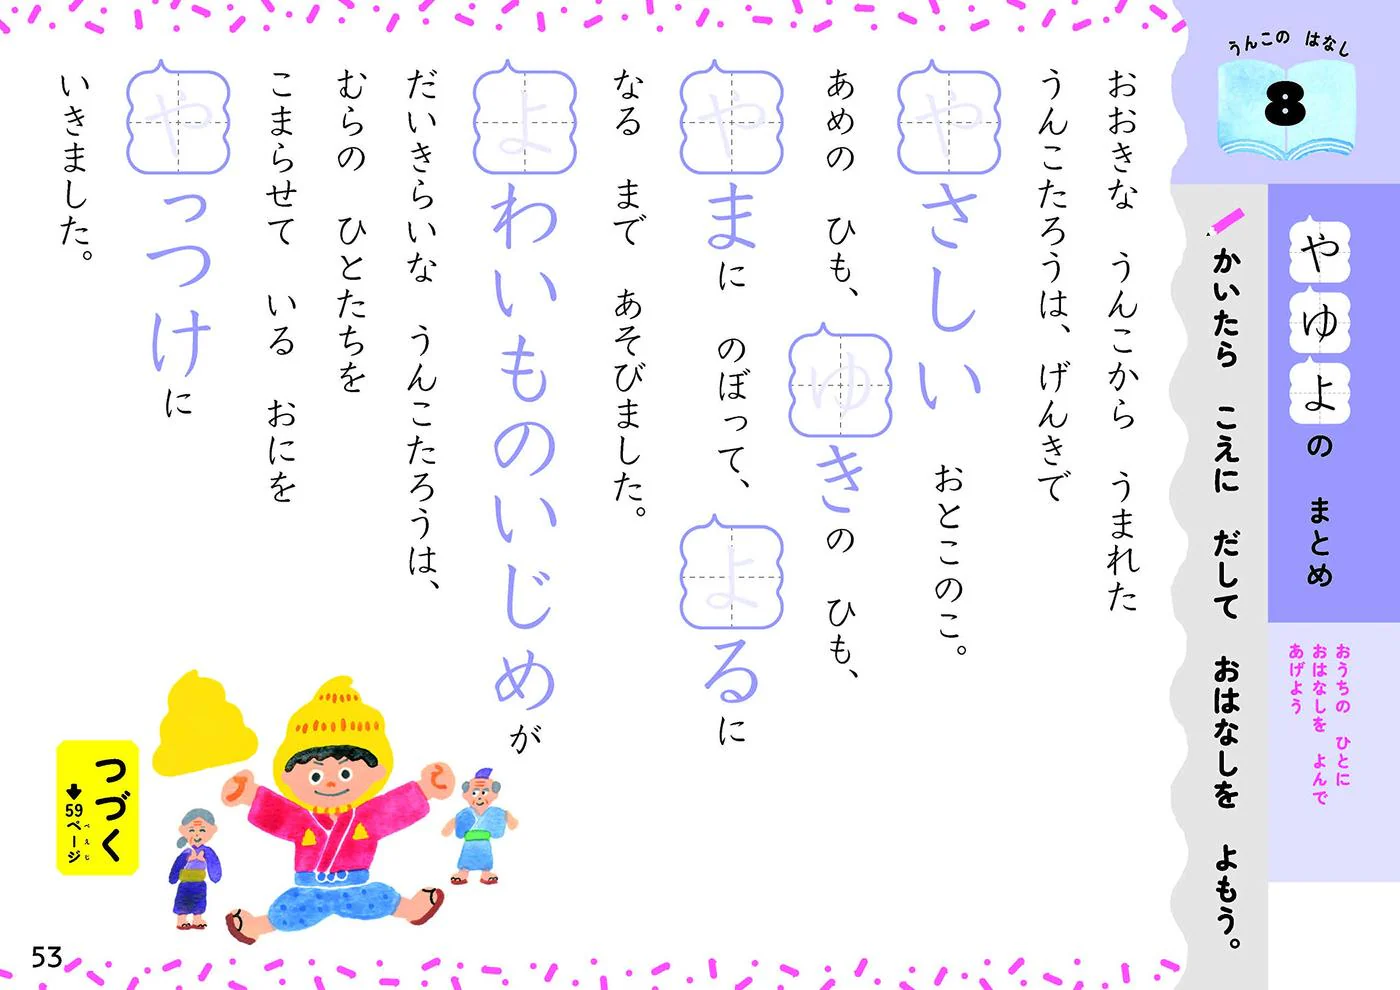 うんこの はなし
8
やゆよの まとめ
おうちの ひとに
おはなしを よんで
あげよう
かいたら こえに だして おはなしを よもう。
おおきな うんこから うまれた
うんこたろうは、げんきで
やさしい おとこのこ。
あめの ひも、ゆきの ひも、
やまに のぼって、よるに
なる まで あそびました。
よわいものいじめが
だいきらいな うんこたろうは、
むらの ひとたちを
こまらせて いる おにを
やっつけに
いきました。
つづく
59ページ
ぺえじ
53